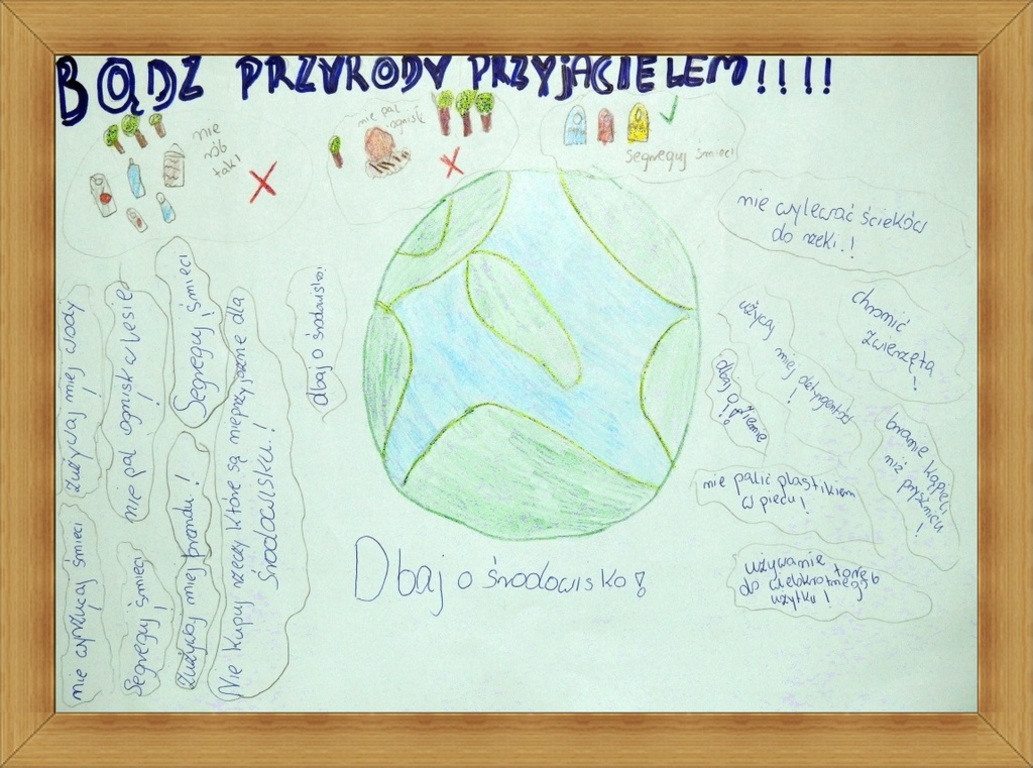 BĄDZ PRZYRODY PRZYJACIELEM!!!!
nie
rób
tak!
nie pal
ognisk
Segreguj śmieci
nie wylewać ścieków
do rzeki.!
zużywaj miej wody
!
nie pal ognisk w lesie
!
Segreguj śmieci
!
Nie kupuj rzeczy które są nieprzyjazne dla
środowisku.!
dbaj o środowisko!
nie wyrzucaj śmieci
Segreguj śmieci
!
zużywaj miej prondu!
użycaj miej detergentów
!
chronić
zwierzęta
!
dbaj o ziemie
!!
branie kąpieli
niż prysznicu
!
nie palić plastikiem
w piecu!
używanie toreb
do wielokrotnego
użytku!
Dbaj o środowisko!